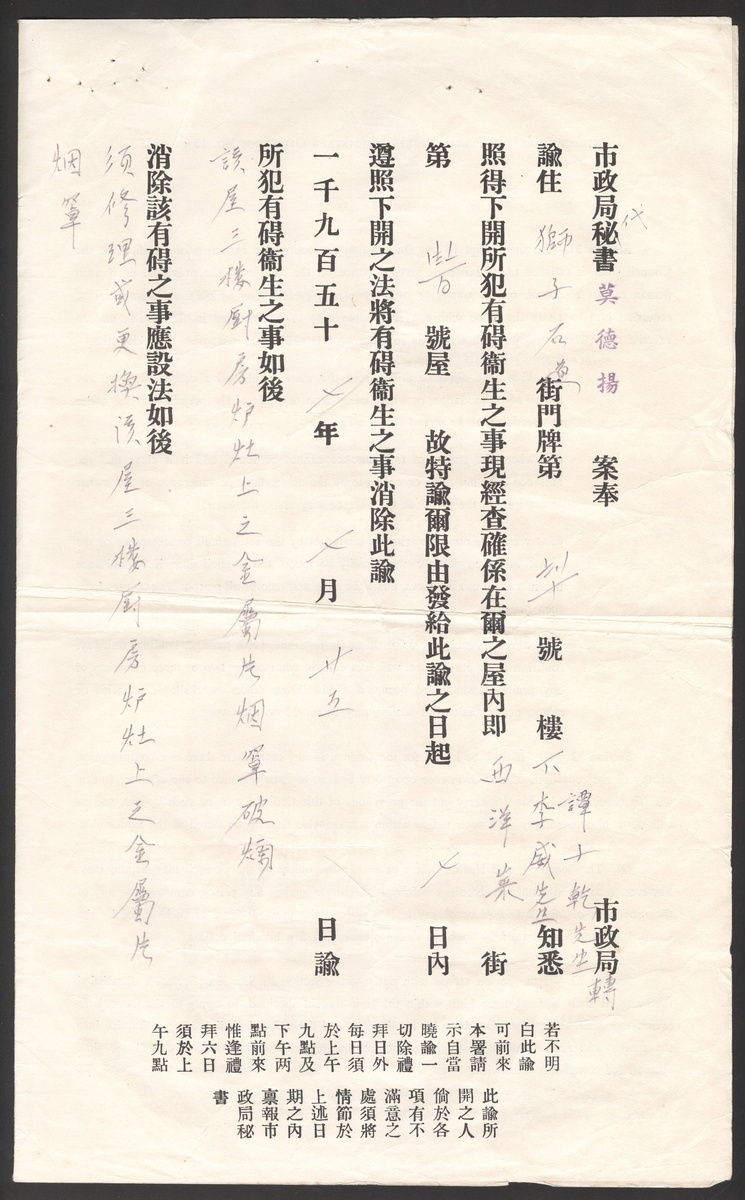 市政局秘書代莫德揚 案奉 市政局
諭住 獅子石道 街門牌第 號 樓下 譚十乾先生轉 李威先生 知悉
照得下開所犯有碍衞生之事現經查確係在爾之屋內即 西洋菜 街
第 號屋 故特諭爾限由發給此諭之日起 〤 日內
遵照下開之法將有碍衞生之事消除此諭
一千九百五十 〤 年 〤 月 廿五 日諭
所犯有碍衞生之事如後
該屋三樓厨房炉灶上之金屬片烟罩破爛
消除該有碍之事應設法如後
須修理或更換該屋三樓厨房炉灶上之金屬片
烟罩
若不明
白此諭
可前來
本署請
示自當
曉諭一
切除禮
拜日外
每日須
於上午
九點及
下午两
點前來
惟逢禮
拜六日
須於上
午九點
此諭所
開之人
倘於各
項有不
滿意之
處須將
情節於
上述日
期之內
禀報市
政局秘
書